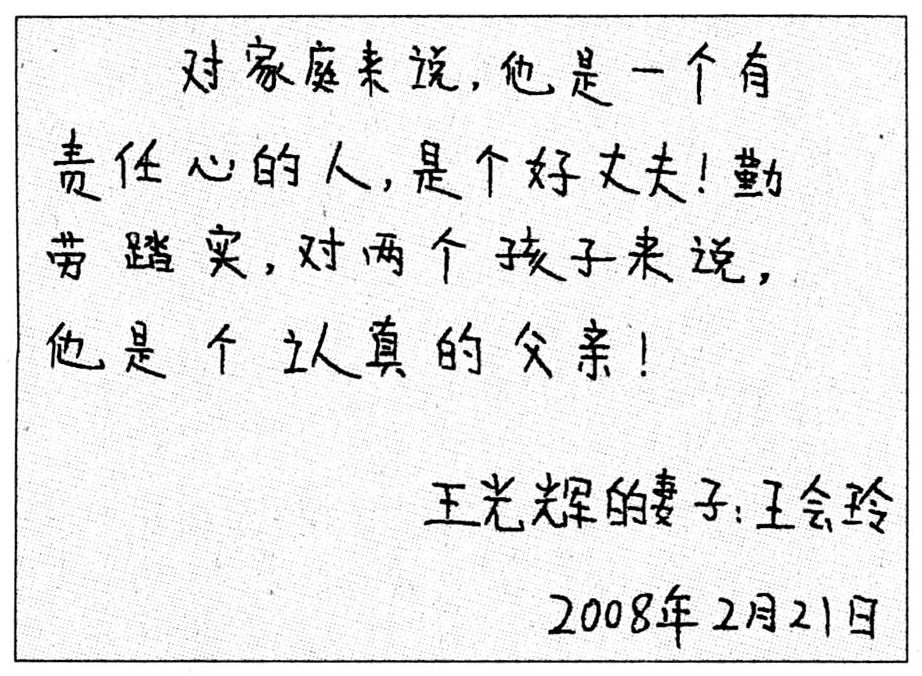 对家庭来说,他是一个有
责任心的人,是个好丈夫!勤
劳踏实,对两个孩子来说,
他是个认真的父亲!
王光辉的妻子:王会玲
2008年2月21日